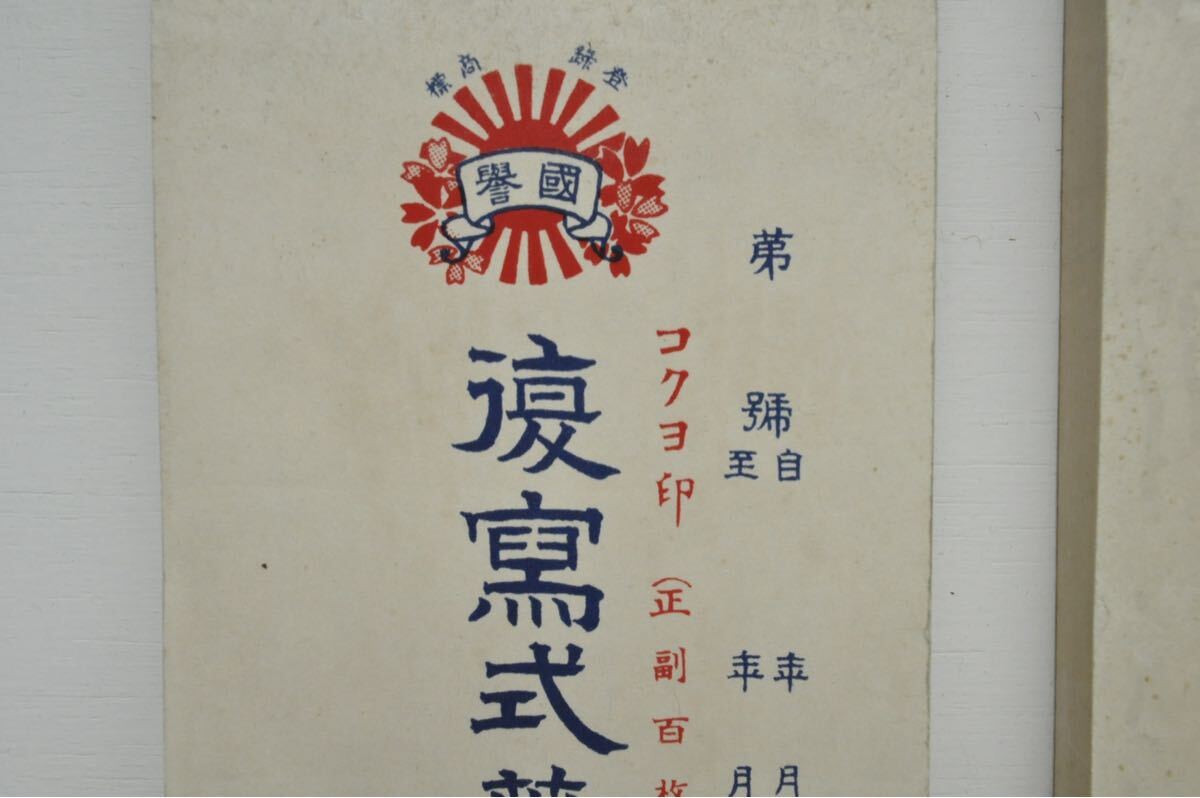 登錄商標
國譽
第號
自年月
至年月
コクヨ印(正副百枚
復寫式